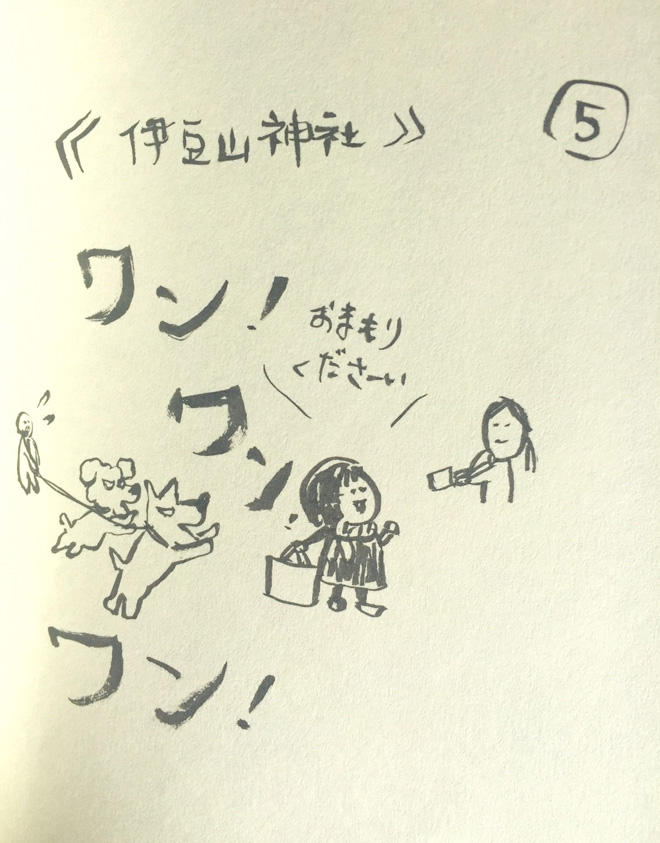 《伊豆山神社》
5
ワン！
おまもり
くださーい
ワン！
ワン！